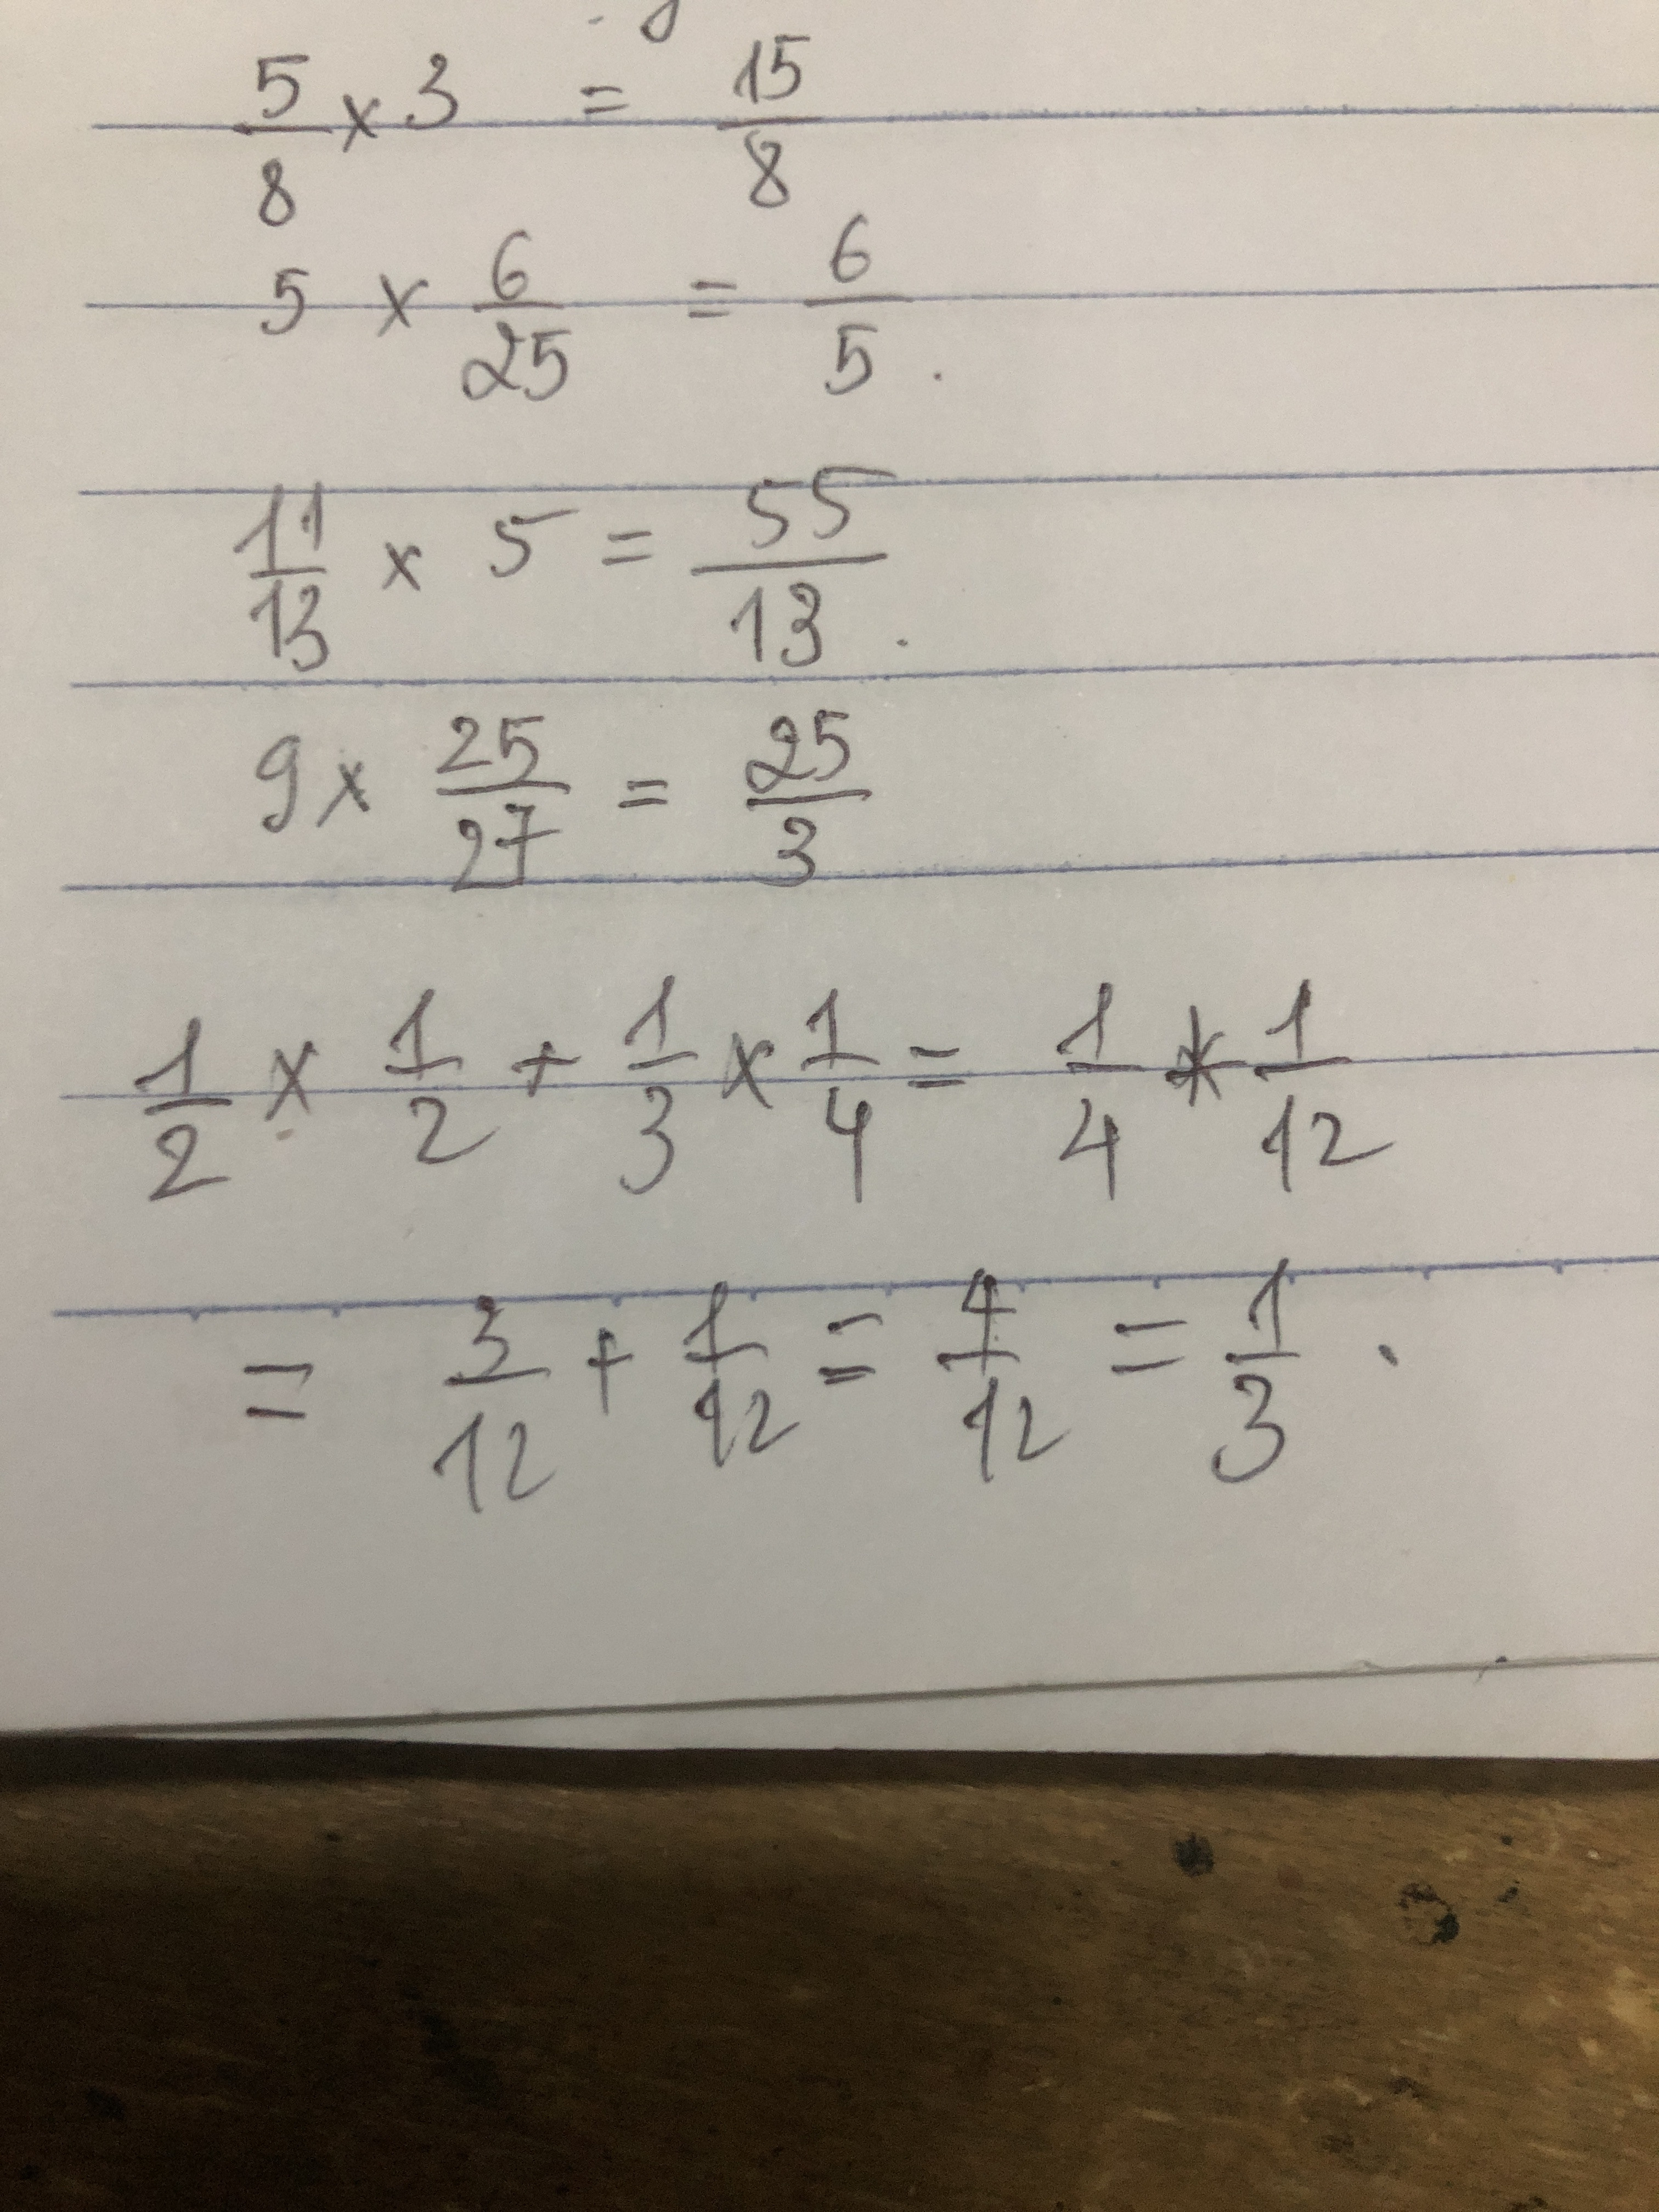 5/8 × 3 = 15/8
5 × 6/25 = 6/5 .
11/13 × 5 = 55/13 .
9 × 25/27 = 25/3
1/2 × 1/2 + 1/3 × 1/4 = 1/4 + 1/12
= 3/12 + 1/12 = 4/12 = 1/3 .